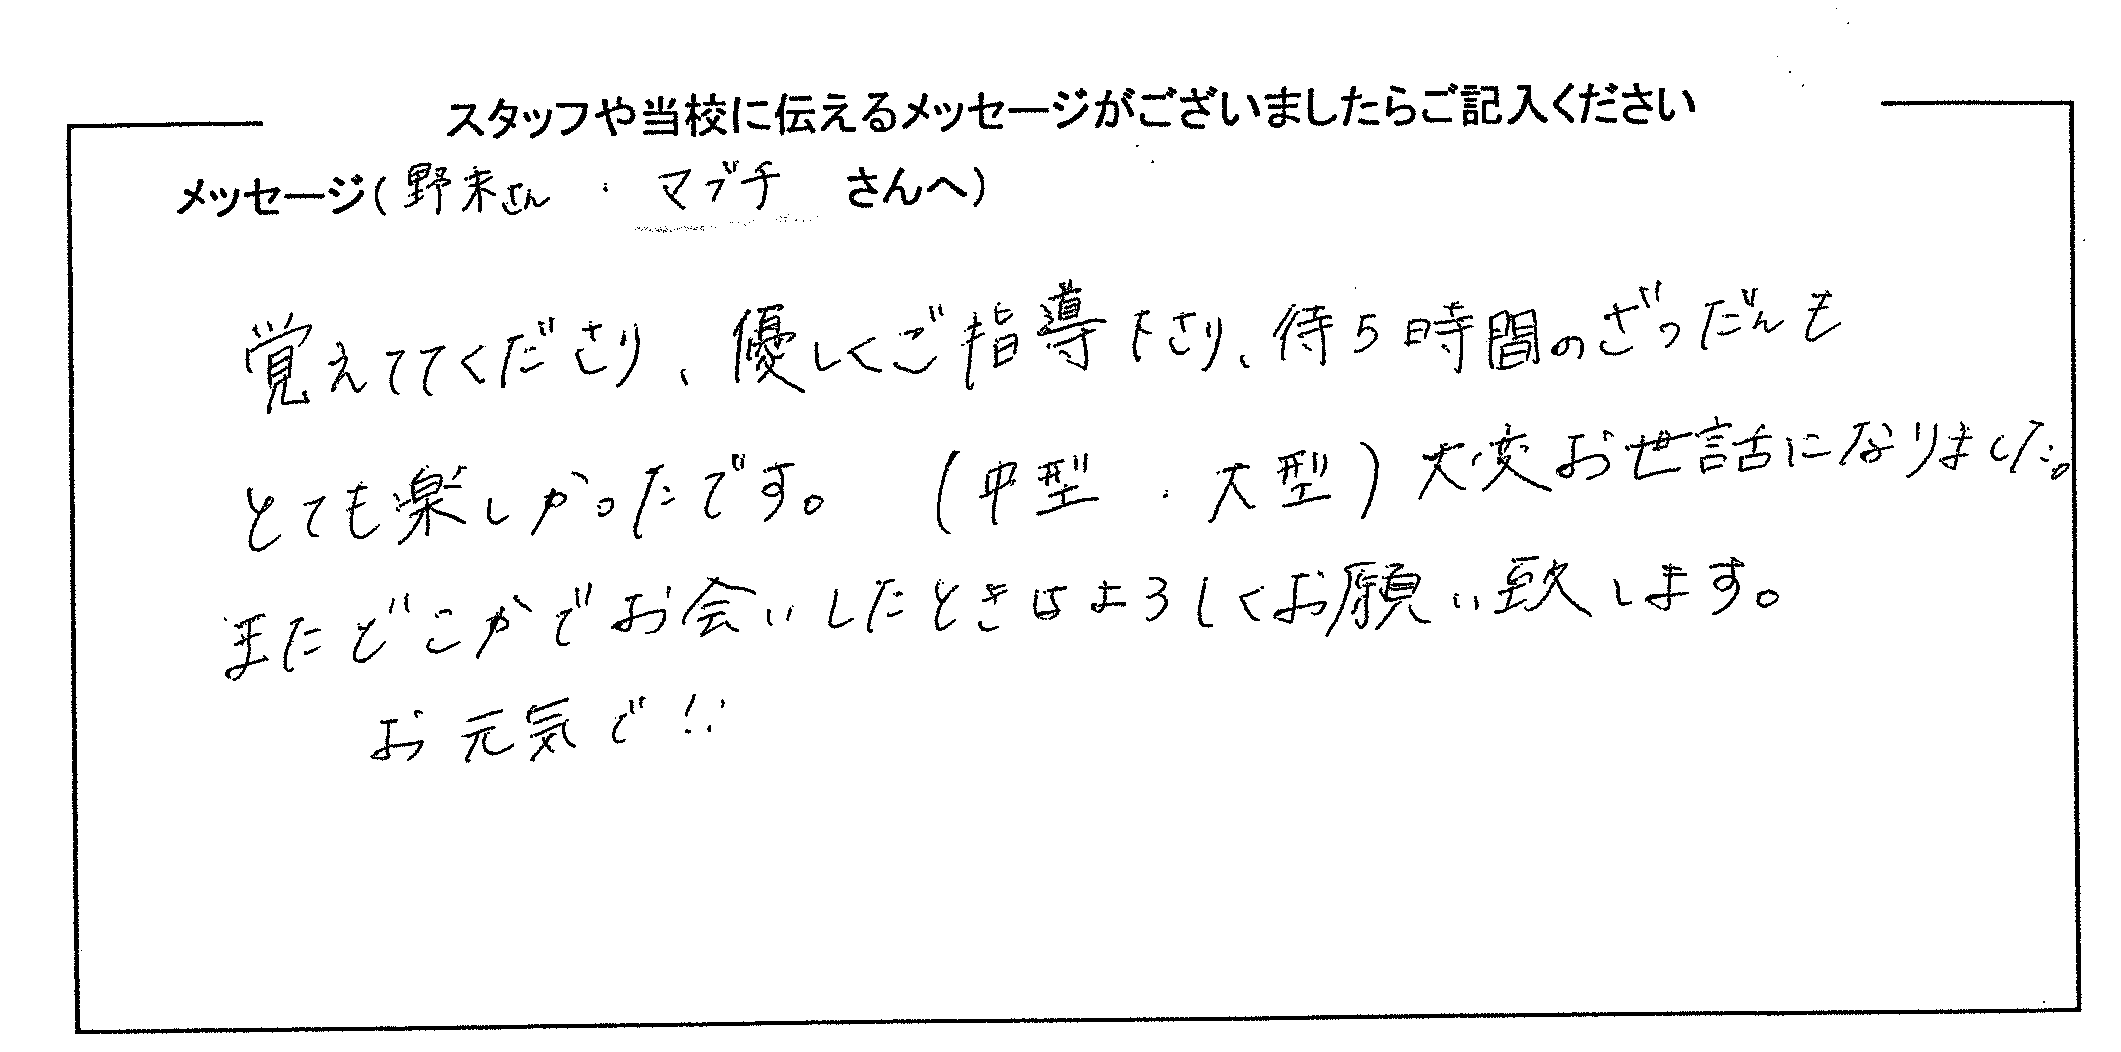 スタッフや当校に伝えるメッセージがございましたらご記入ください
メッセージ(野末さん ・ マブチ さんへ)
覚えててくださり、優しくご指導下さり、待ち時間のざつだんも
とても楽しかったです。 (中型 ・ 大型) 大変お世話になりました。
またどこかでお会いしたときはよろしくお願い致します。
お元気で!!